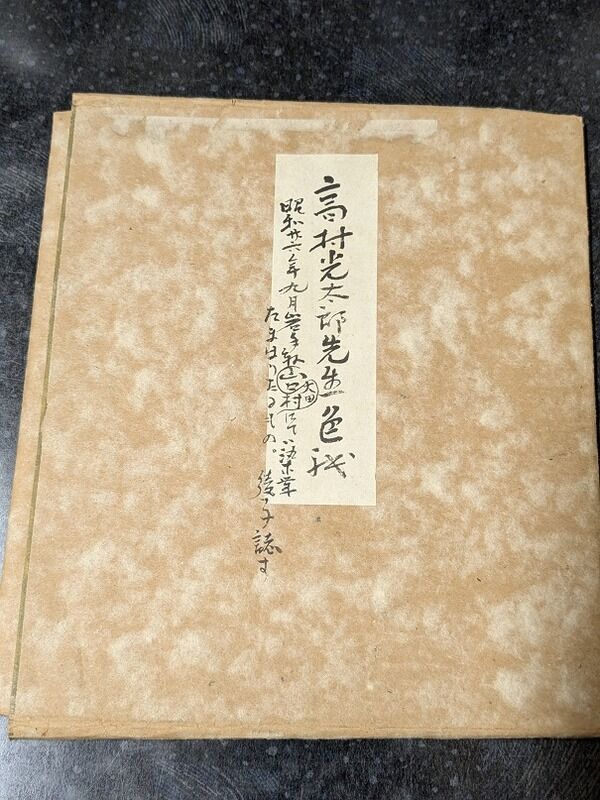 高村光太郎先生色紙
昭和廿六年九月岩手縣山口村にて
太田
たまはりたるもの。
綾子誌す